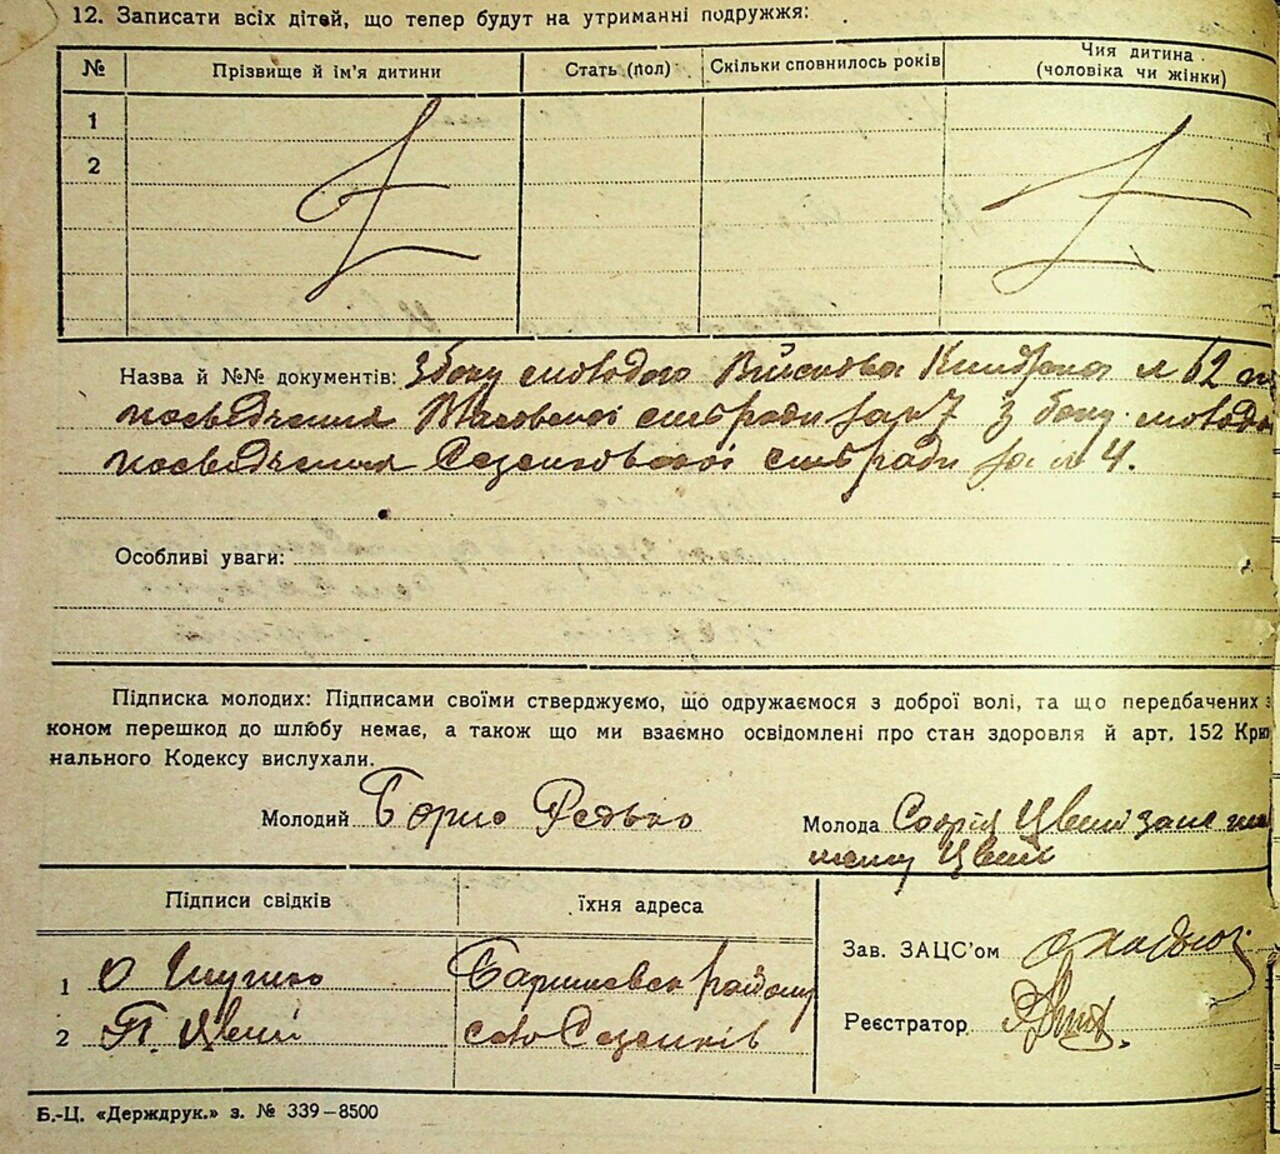 12. Записати всіх дітей, що тепер будут на утриманні подружжя:
№ Прізвище й ім'я дитини Стать (пол) Скільки сповнилось років Чия дитина (чоловіка чи жінки)
1
2
Назва й №№ документів: З боку молодого Військова Книжка № 62
посведчення сільради за № 7 З боку молодої
посведчення Сезенківської сільради за № 4.
Особливі уваги:
Підписка молодих: Підписами своїми стверджуємо, що одружаємося з доброї волі, та що передбачених з
коном перешкод до шлюбу немає, а також що ми взаємно освідомлені про стан здоровля й арт. 152 Кри
нального Кодексу вислухали.
Молодий Борис Редько
Молода Софія Цвей
Цвей
Підписи свідків їхня адреса
Зав. ЗАЦС'ом
1 О Баришевск району
2 П. Цвей село Сезенків
Реєстратор
Б.-Ц. «Держдрук.» з. № 339—8500